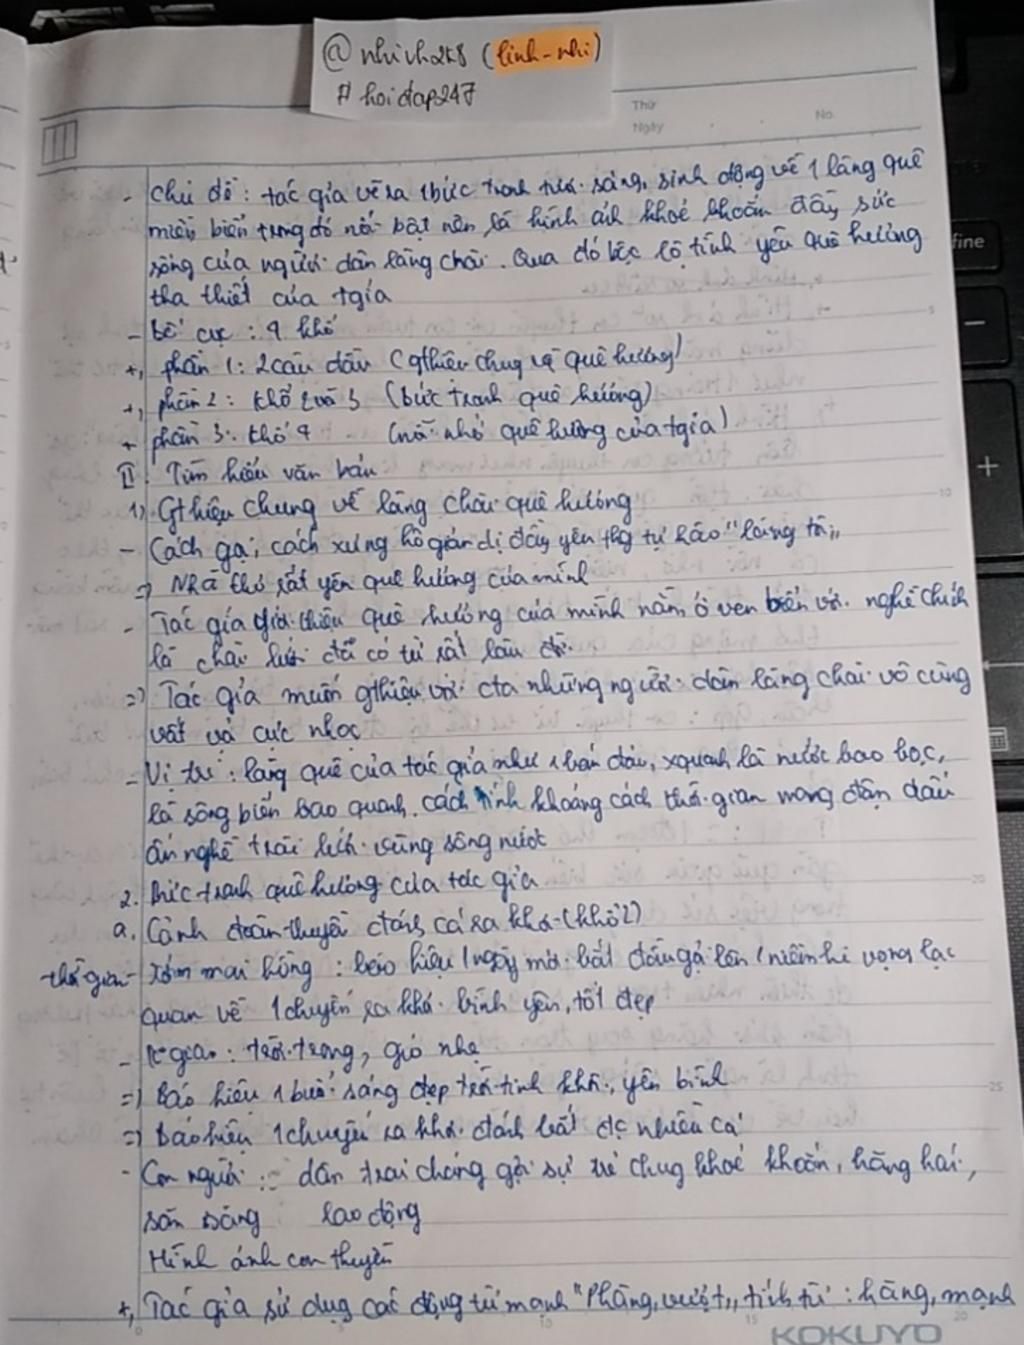 @ nhivh2k8 (linh-nhi)
# hoidap247
Thứ
Ngày
No.
- Chủ đề: tác giả vẽ ra 1 bức tranh tươi sáng, sinh động về 1 làng quê
miền biển trong đó nổi bật nên là hình ảnh khoẻ khoắn đầy sức
sống của người dân làng chài. Qua đó bộc lộ tình yêu quê hương
tha thiết của tgiả
- bố cục: 4 khổ
+, phần 1: 2 câu đầu (gthiệu chug về quê hương)
+, phần 2: khổ 2 và 3 (bức tranh quê hương)
+ phần 3: khổ 4 (nỗi nhớ quê hương của tgiả)
II. Tìm hiểu văn bản
1) Gthiệu chung về làng chài quê hương
- Cách gọi, cách xưng hô giản dị đầy yêu thg tự hào "làng tôi"
=> Nhà thơ rất yêu quê hương của mình
- Tác giả giới thiệu quê hương của mình nằm ở ven biển với nghề chính
là chài lưới đã có từ rất lâu đời
=> Tác giả muốn gthiệu với cta những người dân làng chài vô cùng
vất vả cực nhọc
- Vị trí: làng quê của tác giả như 1 bán đảo, xquanh là nước bao bọc,
là sông biển bao quanh, cách tính khoảng cách thời gian mang đậm dấu
ấn nghề trải lưới vùng sông nước
2. Bức tranh quê hương của tác giả
a. Cảnh đoàn thuyền đánh cá ra khơi (khổ 2)
thời gian - Sớm mai hồng: báo hiệu 1 ngày mới bắt đầu gợi lên 1 niềm hi vọng lạc
quan về 1 chuyến ra khơi bình yên, tốt đẹp
- K gian: trời trong, gió nhẹ
=> Báo hiệu 1 buổi sáng đẹp trời tinh khôi, yên bình
=> Báo hiệu 1 chuyến ra khơi đánh bắt đc nhiều cá
- Con người: dân trai tráng gợi sự trẻ chug khoẻ khoắn, hăng hái,
sẵn sàng lao động
Hình ảnh con thuyền
+, Tác giả sử dụg các động từ mạnh "Phăng, vượt", tính từ: hăng, mạnh
KOKUYO